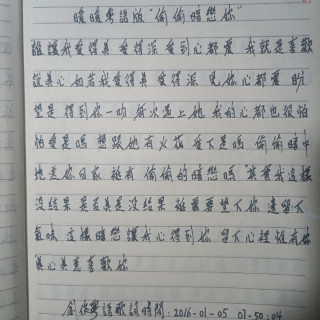 暖暖粤語版“偷偷暗戀你”
誰讓我愛得真 愛得深 愛到心都愛 我就是喜歡
說真心 如若我愛得真 愛得深 見你心都愛 盼
望是 得到你一吻 每次遇上她 我的心都也很怕
怕愛是嗎 想跟她有火花 愛不是嗎 偷偷暗中
她是你回家 能有 偷偷的暗戀嗎 其實我這樣
没结果 是否真是没结果 祗需要望下你 遺留下
氣味 這樣暗戀讓我心得到你 留下心裡惟有你
真心真意喜歡你
創作粤語歌詞時間：2016-01-05 01-50:04